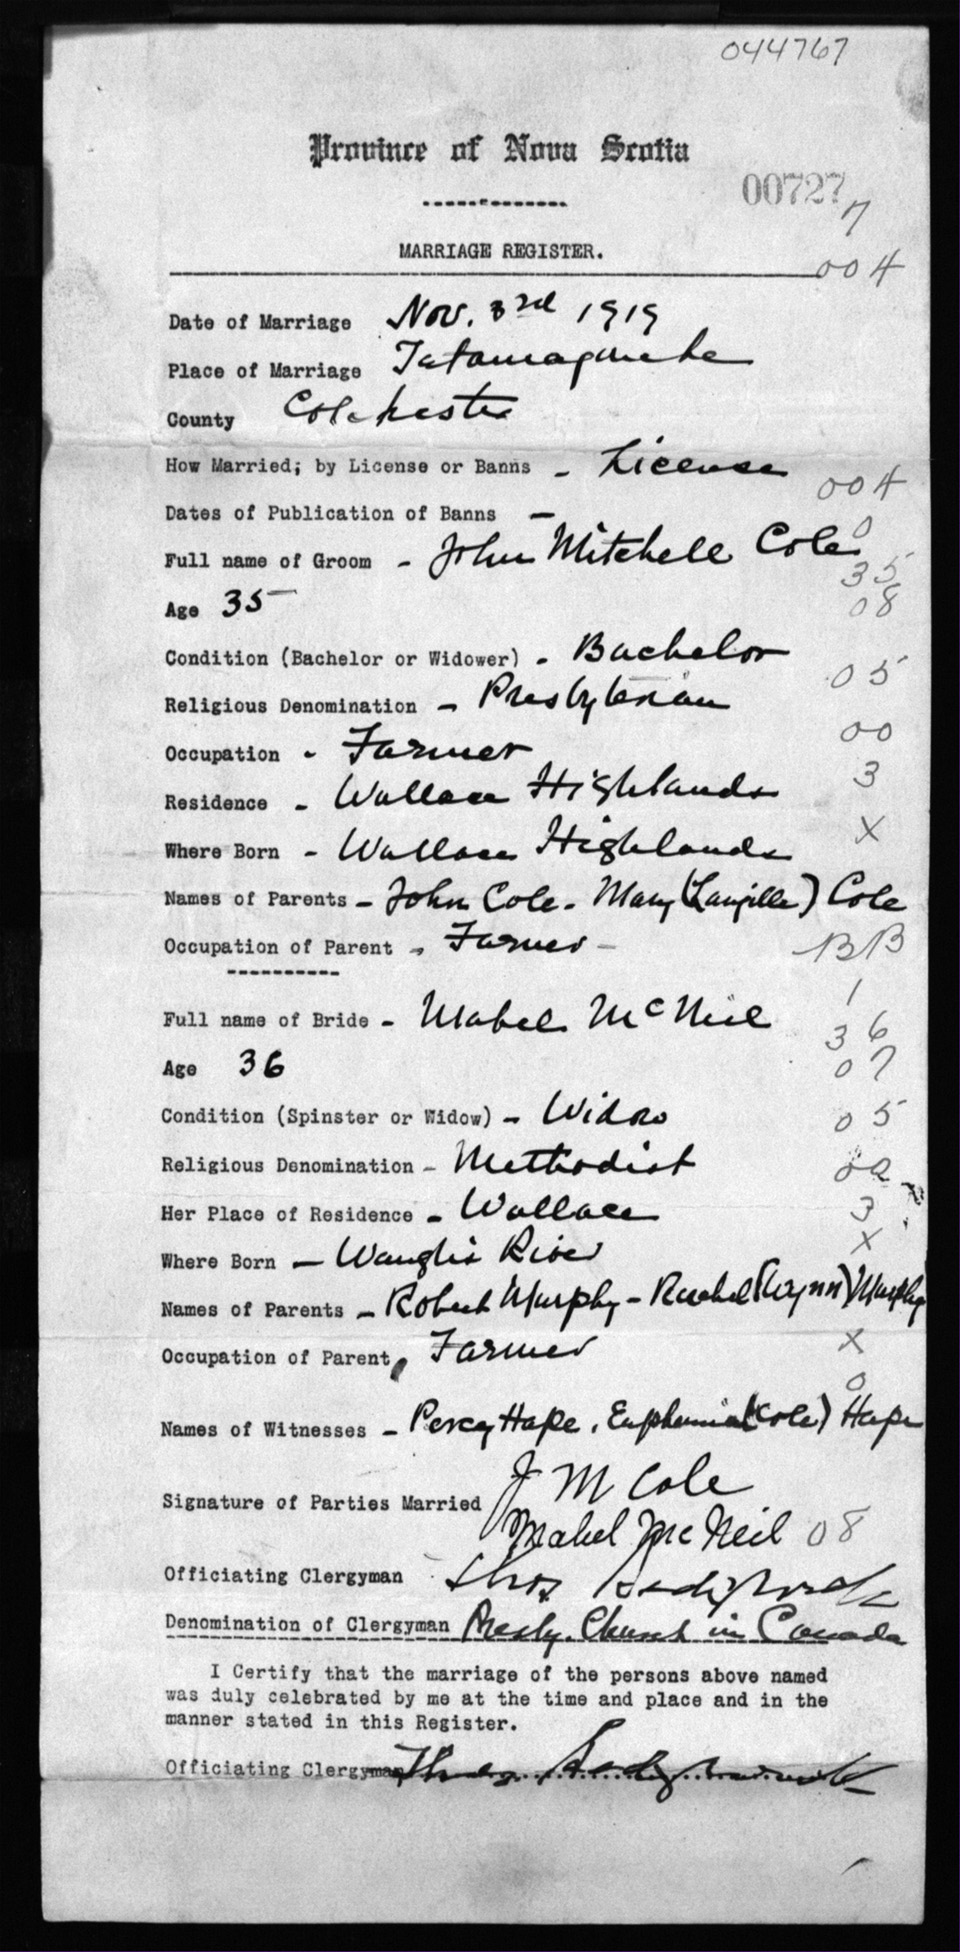 044767
Province of Nova Scotia
00727 7
MARRIAGE REGISTER.
004
Date of Marriage Nov. 3rd 1919
Place of Marriage Tatamagouche
County Colchester
How Married; by License or Banns - License
004
Dates of Publication of Banns -
0
Full name of Groom - John Mitchell Cole
35
Age 35
08
Condition (Bachelor or Widower) - Bachelor
05
Religious Denomination - Presbyterian
00
Occupation - Farmer
3
Residence - Wallace Highlands
X
Where Born - Wallace Highlands
Names of Parents - John Cole - Mary (Langille) Cole
Occupation of Parent - Farmer -
BB
1
Full name of Bride - Mabel McNeil
36
Age 36
07
Condition (Spinster or Widow) - Widow
05
Religious Denomination - Methodist
Her Place of Residence - Wallace
3
X
Where Born - Waugh's River
Names of Parents - Robert Murphy - Rachel (Wynn) Murphy
Occupation of Parent, Farmer
X
0
Names of Witnesses - Percy Hape, Euphemia (Cole) Hape
Signature of Parties Married J M Cole
Mabel McNeil 08
Officiating Clergyman Thos Sedgwick
Denomination of Clergyman Presby. Church in Canada
I Certify that the marriage of the persons above named
was duly celebrated by me at the time and place and in the
manner stated in this Register.
Officiating Clergyman Thomas Sedgwick